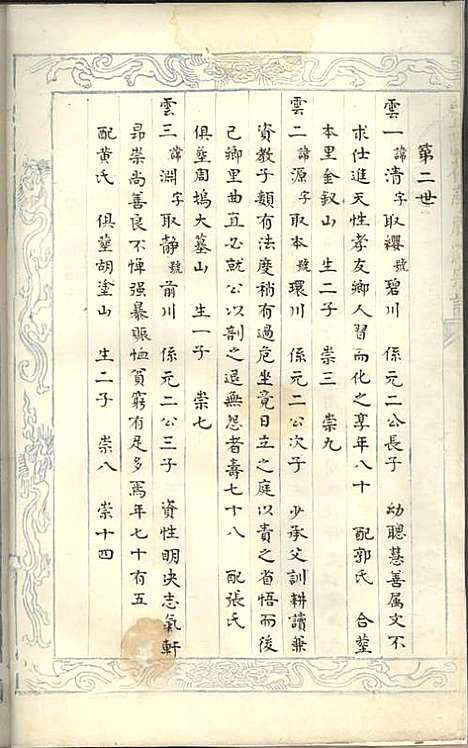 第二世
雲一諱清字取纓號碧川 係元二公長子 幼聰慧善属文不
求仕進天性孝友鄉人習而化之享年八十 配郭氏 合葬
本里金釵山 生二子 崇三 崇九
雲二諱源字取本號環川 係元二公次子 少承父訓耕讀兼
資教子類有法度稍有過危坐竟日立之庭以責之省悟而後
已鄉里曲直必就公以剖之退無怨者壽七十八 配張氏
俱葬周塢大墓山 生一子 崇七
雲三諱淵字取静號前川 係元二公三子 資性明决志氣軒
昂崇尚善良不憚强暴賑恤貧窮有足多焉年七十有五
配黄氏 俱葬胡塗山 生二子 崇八 崇十四